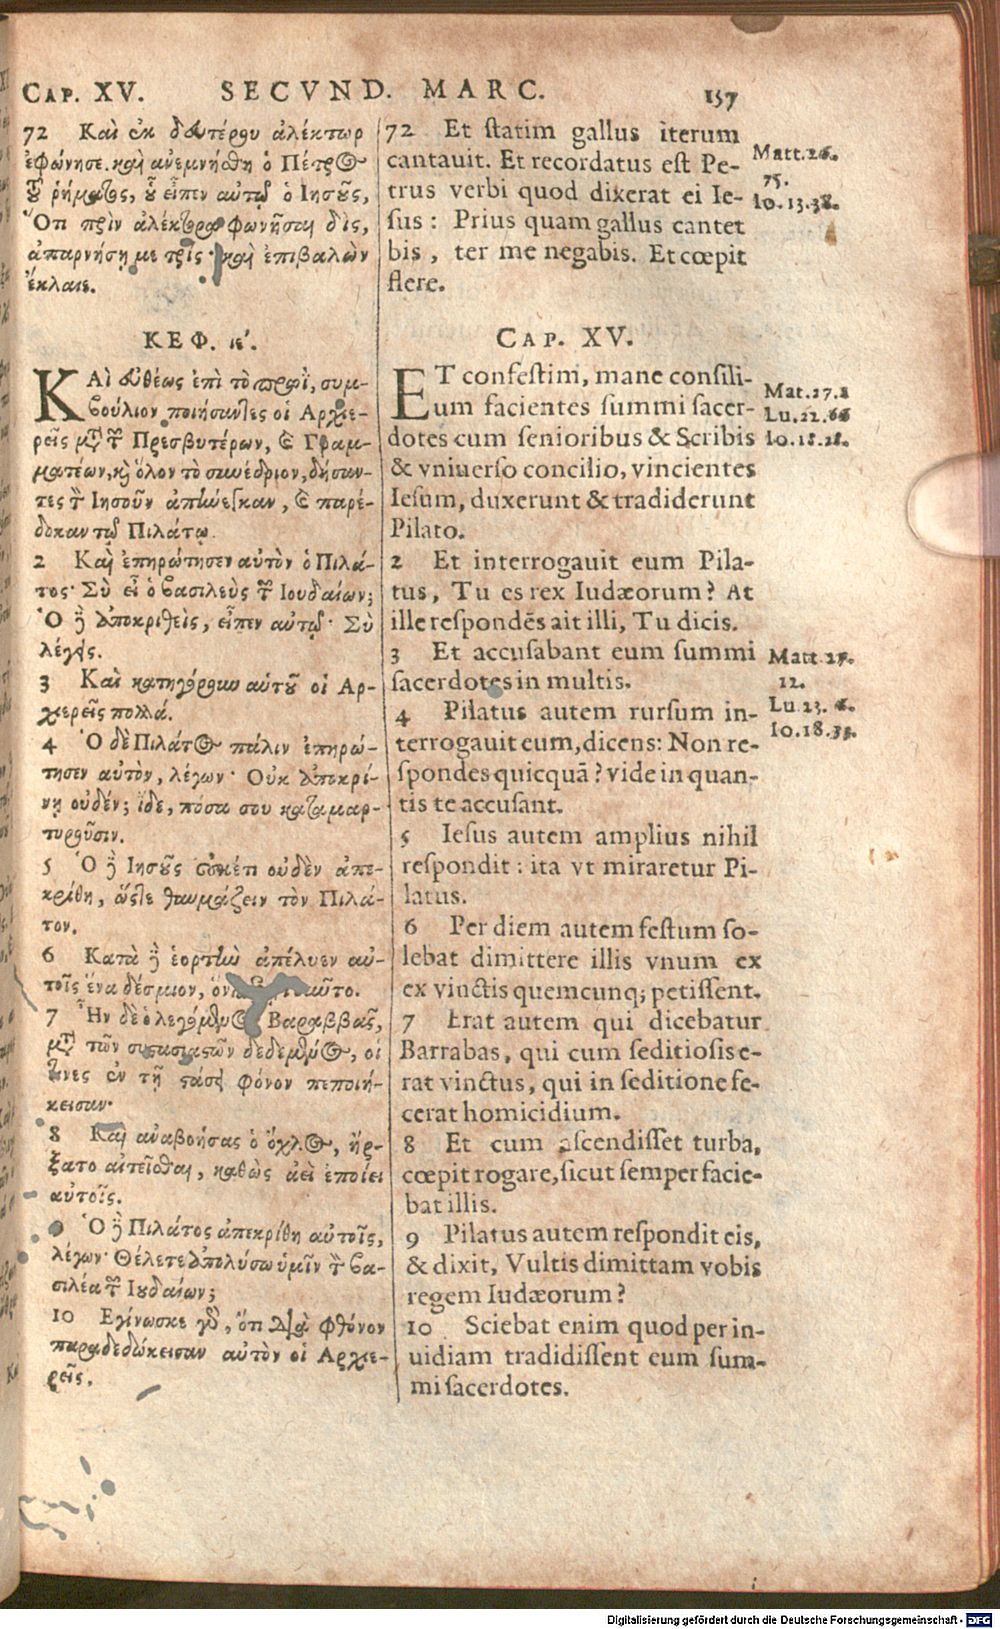 CAP. XV. SECVND. MARC. 157
72 Καὶ ἐκ δευτέρου ἀλέκτωρ
ἐφώνησε. καὶ ἀνεμνήσθη ὁ Πέτρος
τοῦ ῥήματος, οὗ εἶπεν αὐτῷ ὁ Ἰησοῦς,
Ὅτι πρὶν ἀλέκτορα φωνῆσαι δὶς,
ἀπαρνήσῃ με τρὶς· καὶ ἐπιβαλὼν
ἔκλαιε.
ΚΕΦ. ιε'.
ΚΑΙ εὐθέως ἐπὶ τὸ πρωῒ, συμ-
βούλιον ποιήσαντες οἱ Ἀρχιε-
ρεῖς μετὰ τῶν Πρεσβυτέρων, καὶ Γραμ-
ματέων, καὶ ὅλον τὸ συνέδριον, δήσαν-
τες τὸν Ἰησοῦν ἀπήνεγκαν, καὶ παρέ-
δωκαν τῷ Πιλάτῳ.
2 Καὶ ἐπηρώτησεν αὐτὸν ὁ Πιλά-
τος· Σὺ εἶ ὁ βασιλεὺς τῶν Ἰουδαίων;
Ὁ δὲ ἀποκριθεὶς, εἶπεν αὐτῷ· Σὺ
λέγεις.
3 Καὶ κατηγόρουν αὐτοῦ οἱ Ἀρ-
χιερεῖς πολλά.
4 Ὁ δὲ Πιλάτος πάλιν ἐπηρώ-
τησεν αὐτὸν, λέγων· Οὐκ ἀποκρί-
νῃ οὐδέν; ἴδε, πόσα σου καταμαρ-
τυροῦσιν.
5 Ὁ δὲ Ἰησοῦς οὐκέτι οὐδὲν ἀπε-
κρίθη, ὥστε θαυμάζειν τὸν Πιλά-
τον.
6 Κατὰ δὲ ἑορτὴν ἀπέλυεν αὐ-
τοῖς ἕνα δέσμιον,
7 Ἦν δὲ ὁ λεγόμενος Βαραββᾶς,
μετὰ τῶν συστασιαστῶν δεδεμένος, οἵ
τινες ἐν τῇ στάσει φόνον πεποιή-
κεισαν·
8 Καὶ ἀναβοήσας ὁ ὄχλος, ἤρ-
ξατο αἰτεῖσθαι, καθὼς ἀεὶ ἐποίει
αὐτοῖς.
9 Ὁ δὲ Πιλάτος ἀπεκρίθη αὐτοῖς,
λέγων· Θέλετε ἀπολύσω ὑμῖν τὸν βα-
σιλέα τῶν Ἰουδαίων;
10 Ἐγίνωσκε γὰρ, ὅτι διὰ φθόνον
παραδεδώκεισαν αὐτὸν οἱ Ἀρχιε-
ρεῖς.
72 Et statim gallus iterum
cantauit. Et recordatus est Pe-
trus verbi quod dixerat ei Ie-
sus: Prius quam gallus cantet
bis, ter me negabis. Et cœpit
flere.
CAP. XV.
ET confestim, mane consili-
um facientes summi sacer-
dotes cum senioribus & Scribis
& vniuerso concilio, vincientes
Iesum, duxerunt & tradiderunt
Pilato.
2 Et interrogauit eum Pila-
tus, Tu es rex Iudæorum? At
ille respondēs ait illi, Tu dicis.
3 Et accusabant eum summi
sacerdotes in multis.
4 Pilatus autem rursum in-
terrogauit eum, dicens: Non re-
spondes quicquā? vide in quan-
tis te accusant.
5 Iesus autem amplius nihil
respondit: ita vt miraretur Pi-
latus.
6 Per diem autem festum so-
lebat dimittere illis vnum ex
ex vinctis quemcunq; petissent.
7 Erat autem qui dicebatur
Barrabas, qui cum seditiosis e-
rat vinctus, qui in seditione fe-
cerat homicidium.
8 Et cum ascendisset turba,
cœpit rogare, sicut semper facie-
bat illis.
9 Pilatus autem respondit eis,
& dixit, Vultis dimittam vobis
regem Iudæorum?
10 Sciebat enim quod per in-
uidiam tradidissent eum sum-
mi sacerdotes.
Matt. 26.
75.
Io. 13. 38.
Mat. 27. 1
Lu. 22. 66
Io. 18. 28.
Matt. 27.
12.
Lu 23.
Io. 18. 33.
Digitalisierung gefördert durch die Deutsche Forschungsgemeinschaft - DFG